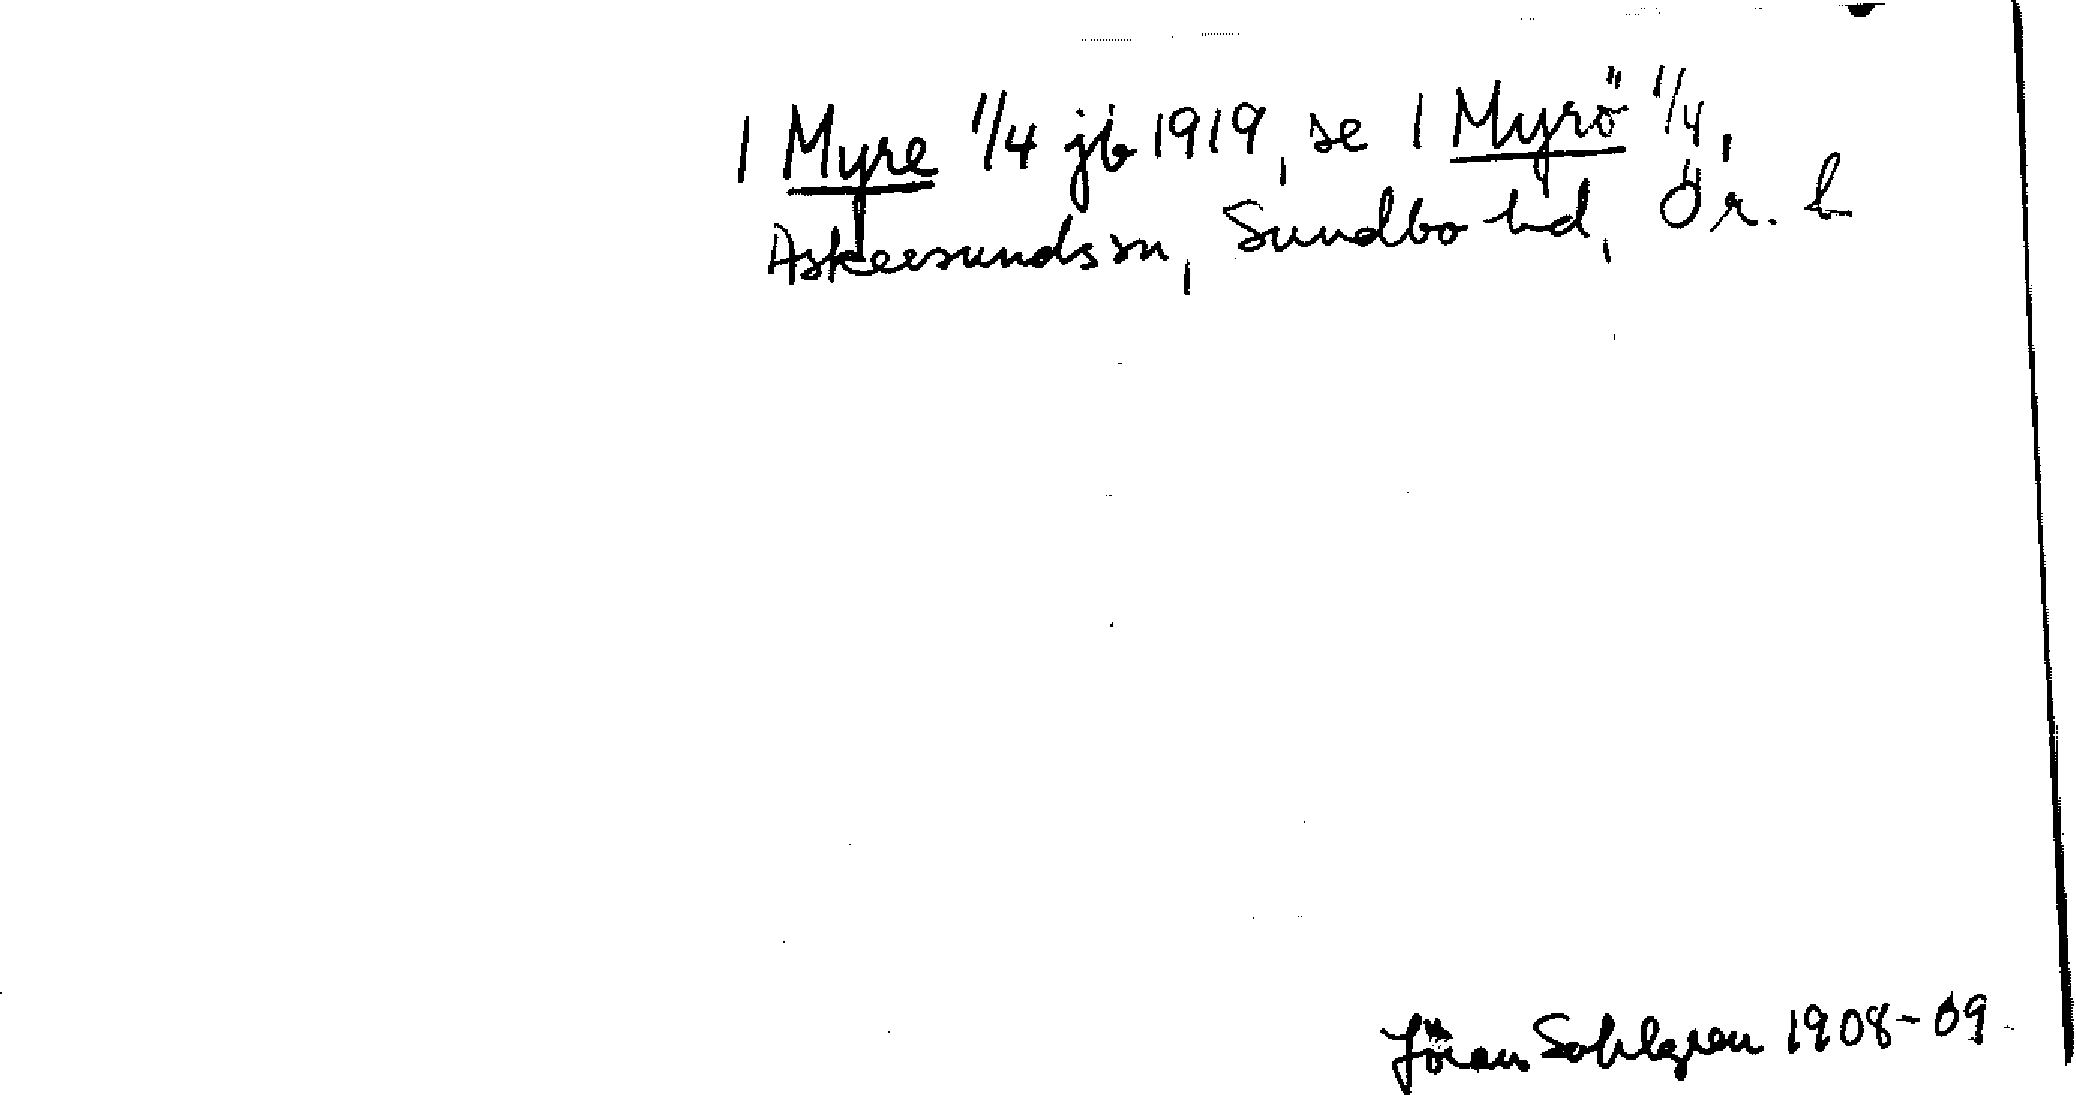 1 Myre 1/4 jb 1919, se 1 Myrö 1/4,
Askersunds sn, Sundbo hd, Ör. l.
Jöran Sahlgren 1908-09